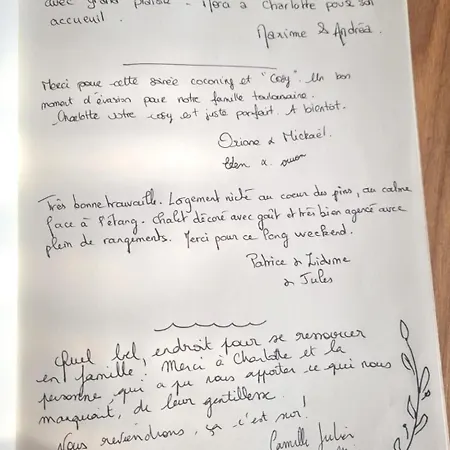 avec grand plaisir - Merci à Charlotte pour son
accueil.
Maxime & Andréa.
Merci pour cette soirée cocooning et "Cosy". Un bon
moment d'évasion pour notre famille toulousaine.
Charlotte votre cosy est juste parfait. A bientot.
Oriane & Mickaël.
&
Très bonne trouvaille. Logement niché au coeur des pins, au calme
face à l'étang. Chalet décoré avec goût et très bien agencé avec
plein de rangements. Merci pour ce long weekend.
Patrice &
& Jules
Quel bel endroit pour se ressourcer
en famille! Merci à Charlotte et la
personne qui a pu nous apporter ce qui nous
manquait, de leur gentillesse.
Nous reviendrons, ça c'est sur!
Camille Julien